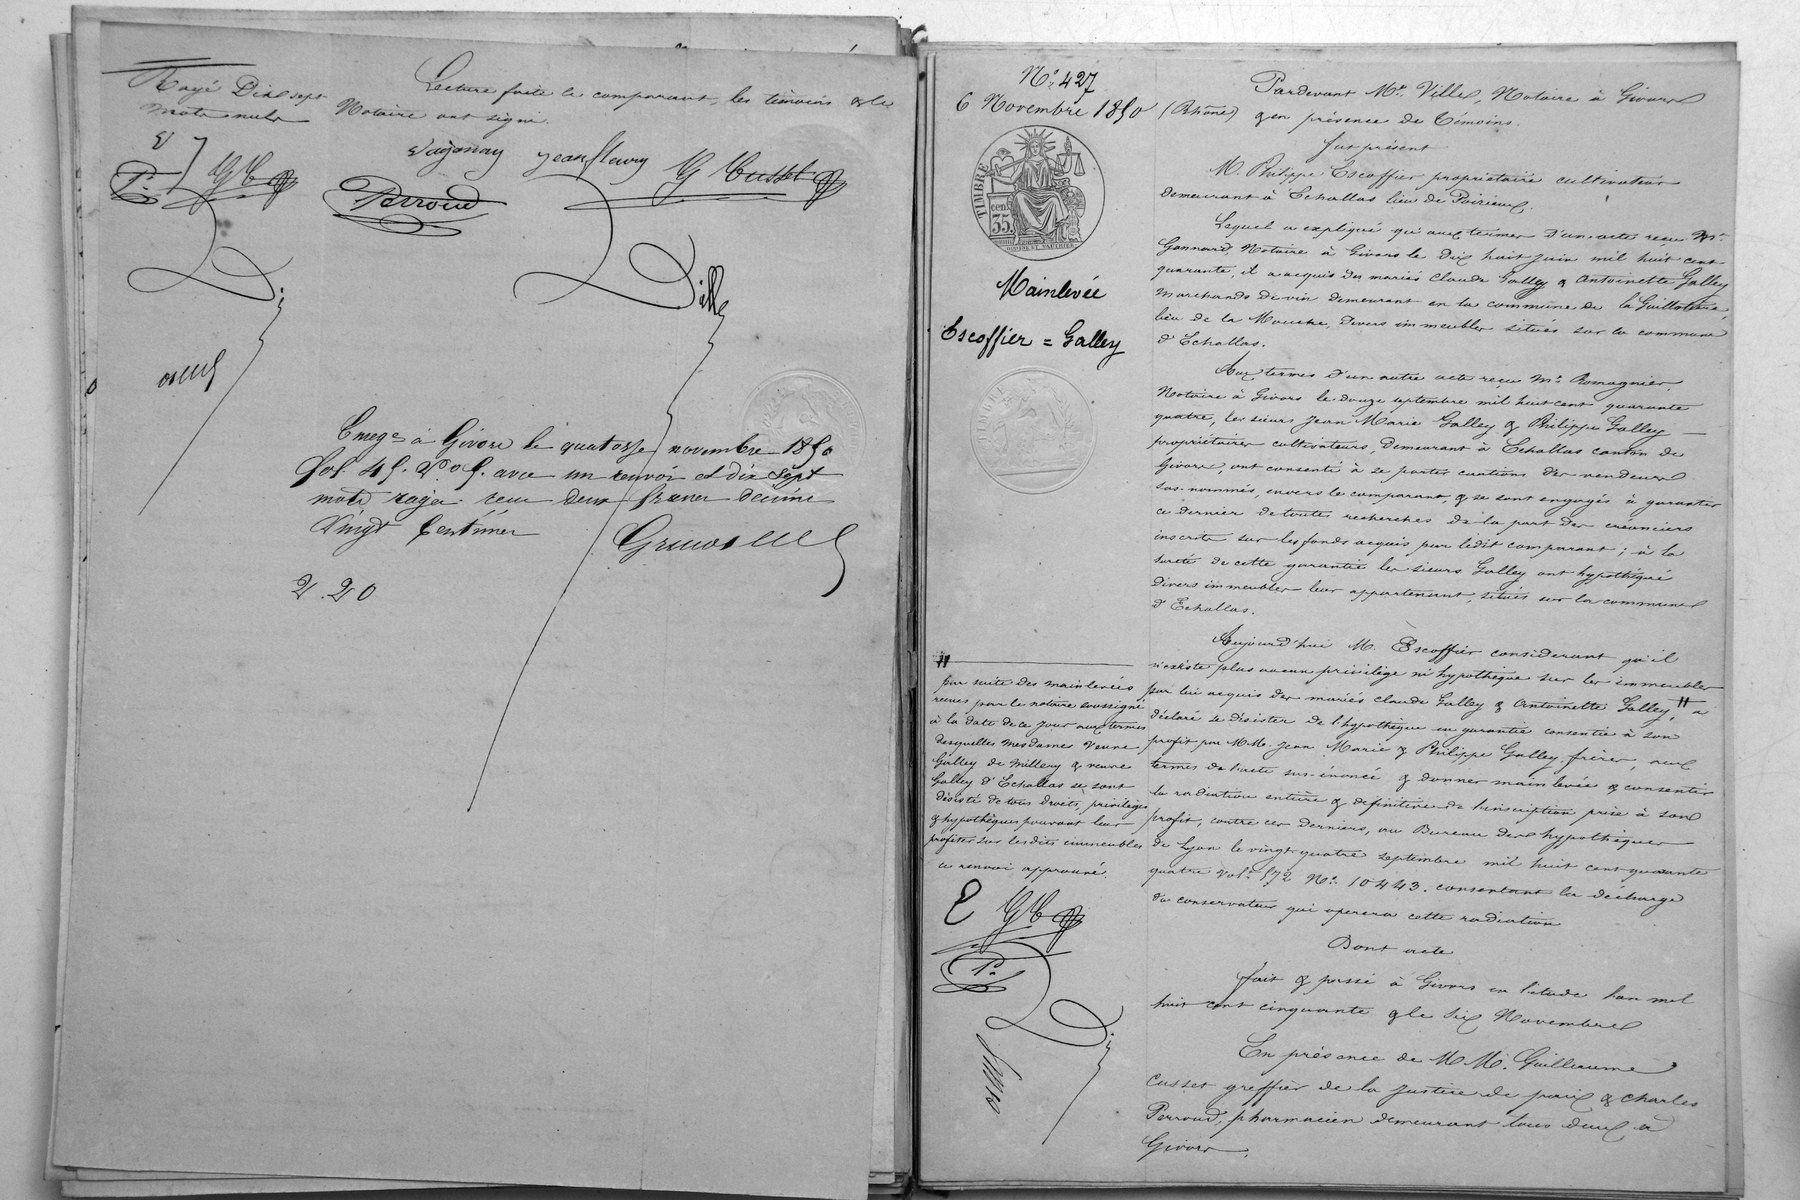 Rayé Dix sept
mots nuls
Lecture faite le comparant, les témoins & le
Notaire ont signé.
Vaganay jean fleury G Cusset
P. G C
Perroud
Ville
Enreg. à Givors le quatorze novembre 1850
fol. 45. avec un renvoi et dix sept
mots rayés. reçu deux francs décime
vingt centimes
2.20
N.º 427
6 Novembre 1850
TIMBRE
35. cent
Mainlevée
Escoffier = Galley
Pardevant Mᵉ. Ville, Notaire à Givors
(Rhône) & en présence de Témoins.
fut présent
M. Philippe Escoffier propriétaire cultivateur
demeurant à Echallas lieu de Poirieux.
Lequel a expliqué qu'aux termes d'un acte reçu Mᵉ.
Gonnard, Notaire à Givors le dix huit juin mil huit cent
quarante, il a acquis des mariés Claude Galley & Antoinette Galley
marchands de vin demeurant en la commune de la Guillotière,
lieu de la Mouche, divers immeubles situés sur la commune
d'Echallas.
Aux termes d'un autre acte reçu Mᵉ. Romagnier,
Notaire à Givors le douze septembre mil huit cent quarante
quatre, les sieurs Jean Marie Galley & Philippe Galley
propriétaires cultivateurs, demeurant à Echallas canton de
Givors, ont consenti à se porter cautions des vendeurs
sus-nommés, envers le comparant, & se sont engagés à garantir
ce dernier de toutes recherches de la part des créanciers
inscrits sur les fonds acquis par ledit comparant; à la
sureté de cette garantie les sieurs Galley ont hypothéqué
divers immeubles leur appartenant, situés sur la commune
d'Echallas.
Aujourd'hui M. Escoffier considerant qu'il
n'existe plus aucun privilège ni hypothèque sur les immeubles
par lui acquis des mariés Claude Galley & Antoinette Galley, " a
déclaré se désister de l'hypothèque en garantie consentie à son
profit par MM. Jean Marie & Philippe Galley frères, aux
termes de l'acte sus-énoncé & donner mainlevée & consentir
la radiation entière & définitive de l'inscription prise à son
profit, contre ces derniers, au Bureau des hypothèques
de Lyon le vingt quatre septembre mil huit cent quarante
quatre vol. 572 Nº. 10443. consentant la décharge
du conservateur qui opérera cette radiation
Dont acte
fait & passé à Givors en l'étude l'an mil
huit cent cinquante & le six Novembre
En présence de MM. Guillaume
Cusset greffier de la justice de paix & Charles
Perroud, pharmacien demeurant tous deux à
Givors.
"
par suite des mainlevées
reçues par le notaire soussigné
à la date de ce jour aux termes
desquelles mesdames veuve
Galley de Millery & veuve
Galley d'Echallas se sont
désisté de tous droits, privilèges
& hypothèques pouvant leur
profiter sur lesdits immeubles
ce renvoi approuvé.
E G C
P.